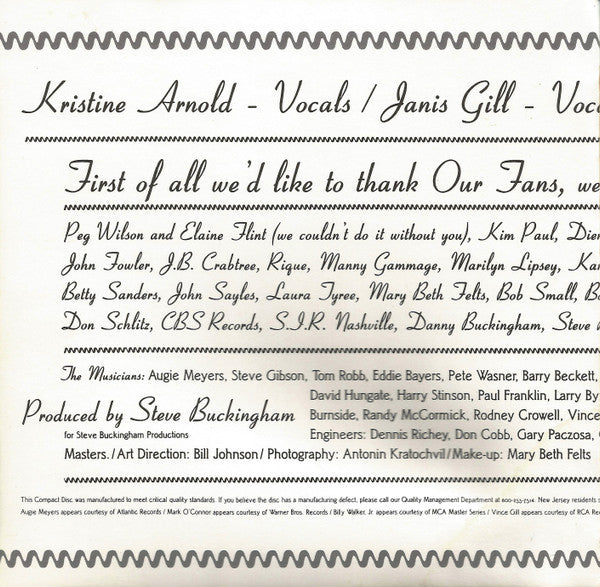 Kristine Arnold - Vocals / Janis Gill - Voc
First of all we'd like to thank Our Fans, we
Peg Wilson and Elaine Flint (we couldn't do it without you), Kim Paul, Dier
John Fowler, J.B. Crabtree, Rique, Manny Gammage, Marilyn Lipsey, Kar
Betty Sanders, John Sayles, Laura Tyree, Mary Beth Felts, Bob Small, B
Don Schlitz, CBS Records, S.I.R. Nashville, Danny Buckingham, Steve
The Musicians: Augie Meyers, Steve Gibson, Tom Robb, Eddie Bayers, Pete Wasner, Barry Beckett,
David Hungate, Harry Stinson, Paul Franklin, Larry By
Produced by Steve Buckingham Burnside, Randy McCormick, Rodney Crowell, Vince
for Steve Buckingham Productions Engineers: Dennis Richey, Don Cobb, Gary Paczosa,
Masters. / Art Direction: Bill Johnson / Photography: Antonin Kratochvil / Make-up: Mary Beth Felts
This Compact Disc was manufactured to meet critical quality standards. If you believe the disc has a manufacturing defect, please call our Quality Management Department at 800-255-7514. New Jersey residents s
Augie Meyers appears courtesy of Atlantic Records / Mark O'Connor appears courtesy of Warner Bros. Records / Billy Walker, Jr. appears courtesy of MCA Master Series / Vince Gill appears courtesy of RCA Re